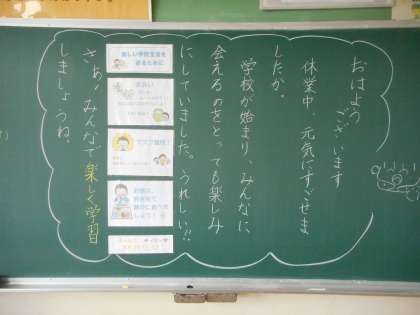 おはようございます
休業中、元気にすごせま
したか。
学校が始まり、みんなに
会えるのをとっても楽しみ
にしていました。うれしい!!
楽しい学校生活を
送るために
手洗い
マスク着用!
さあ、みんなで楽しく学習
しましょうね。